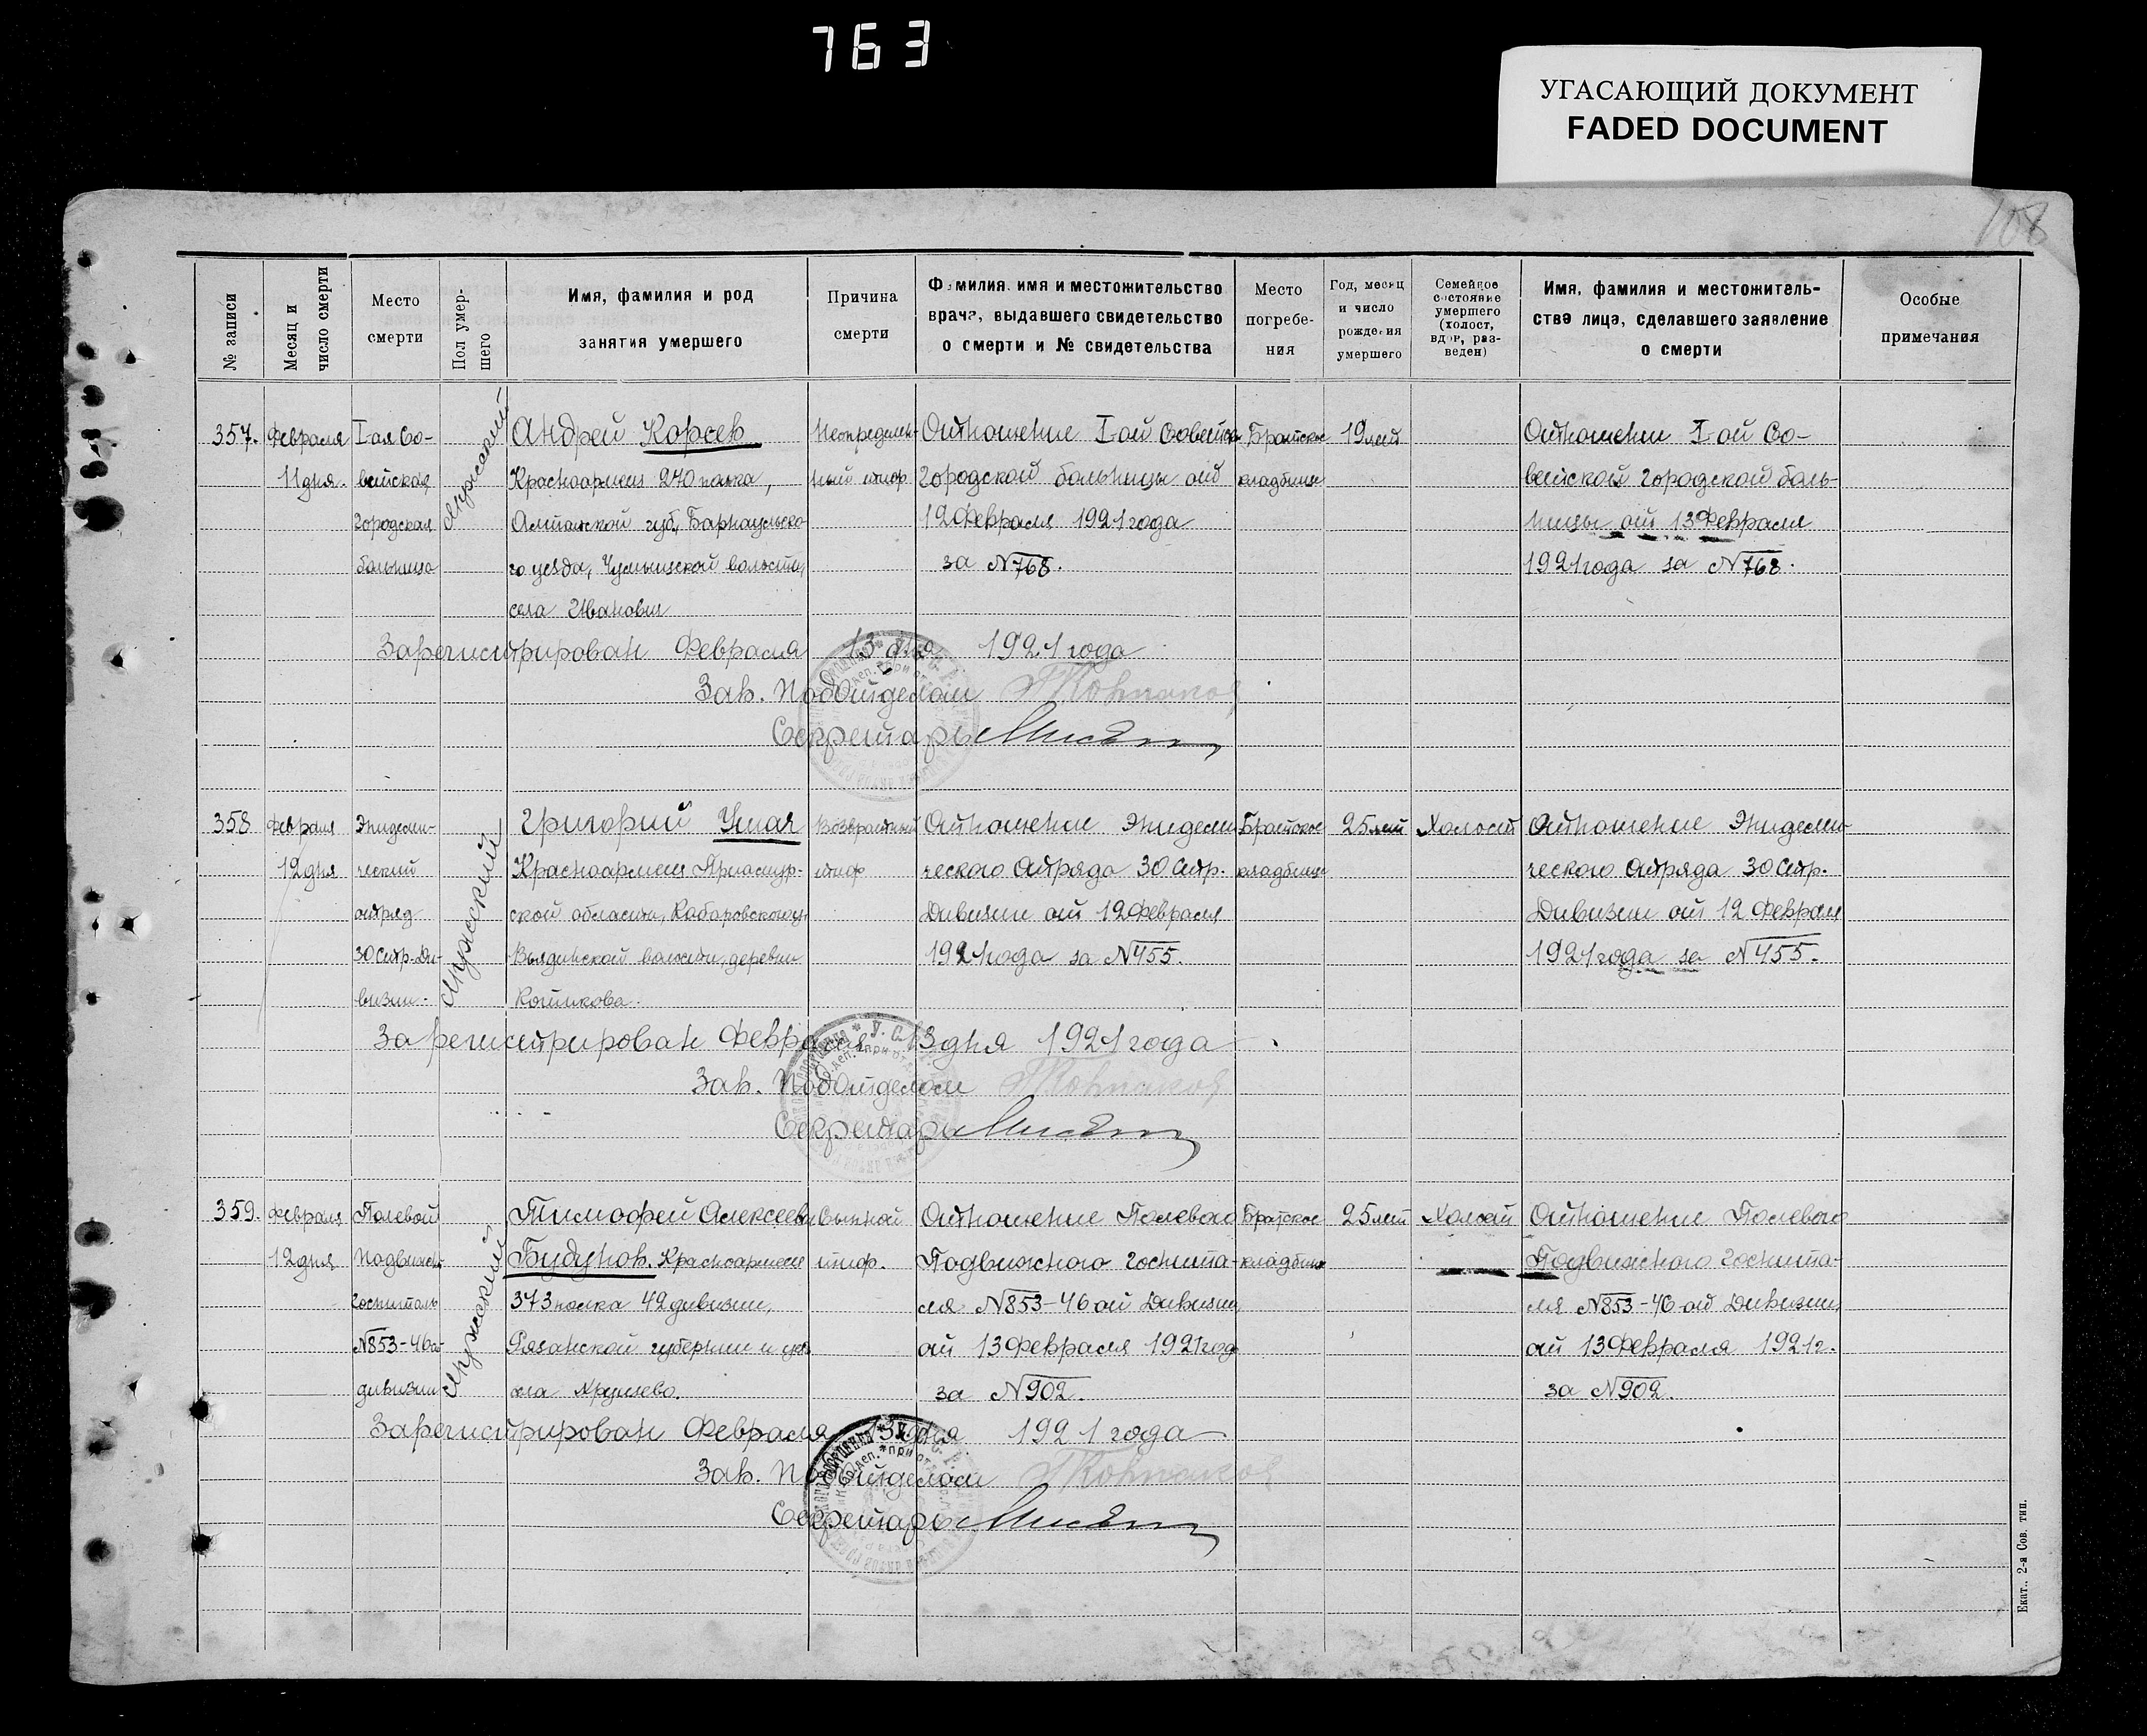 763
УГАСАЮЩИЙ ДОКУМЕНТ
FADED DOCUMENT
108
№ записи
Месяц и
число смерти
Место
смерти
Пол умер-
шего
Имя, фамилия и род
занятия умершего
Причина
смерти
Фамилия, имя и местожительство
врача, выдавшего свидетельство
о смерти и № свидетельства
Место
погребе-
ния
Год, месяц
и число
рождения
умершего
Семейное
состояние
умершего
(холост,
вдов, раз-
веден)
Имя, фамилия и местожитель-
ство лица, сделавшего заявление
о смерти
Особые
примечания
357.
Февраля
11 дня.
I-ая Со-
ветская
городская
больница
Мужской
Андрей Корсев
Красноармеец 270 полка,
Алтайской губ., Барнаульско-
го уезда, Чумышской волости,
села
Неопределен-
ный тиф
Отношение I ой Советской
городской больницы от
12 Февраля 1921 года
за N 768.
Братское
кладбище
19 лет
Отношение I ой Со-
ветской городской боль-
ницы от 13 Февраля
1921 года за N 768.
Зарегистрирован Февраля 13 дня 1921 года
Зав. Подотделом
Секретарь
358
Февраля
12 дня
Эпидеми-
ческий
отряд
30 Стр. Ди-
визии.
Мужской
Григорий Умая
Красноармеец Приамур-
ской области, Хабаровского у.
волости, деревни
Возвратный
тиф
Отношение Эпидеми-
ческого Отряда 30 Стр.
Дивизии от 12 Февраля
1921 года за N 455.
Братское
кладбище
25 лет
Холост
Отношение Эпидеми-
ческого Отряда 30 Стр.
Дивизии от 12 Феврал
1921 года за N 455.
Зарегистрирован Февраля 13 дня 1921 года
Зав. Подотделом
Секретарь
359.
Февраля
12 дня
Полевой
Подвижн.
госпиталь
N 853-46 ой
дивизии
Мужской
Тимофей Алексеевич
Будунов. Красноармеец
373 полка 42 дивизии,
Рязанской губернии и уезда
села Хрущево.
Сыпной
тиф.
Отношение Полевого
Подвижного госпита-
ля N 853-46 ой Дивизии
от 13 Февраля 1921 год
за N 902.
Братское
кладбище
25 лет
Холост
Отношение Полевого
Подвижного госпита-
ля N 853-46 ой Дивизии
от 13 Февраля 1921 г.
за N 902.
Зарегистрирован Февраля 13 дня 1921 года
Зав. Подотделом
Секретарь
Екат., 2-я Сов. тип.